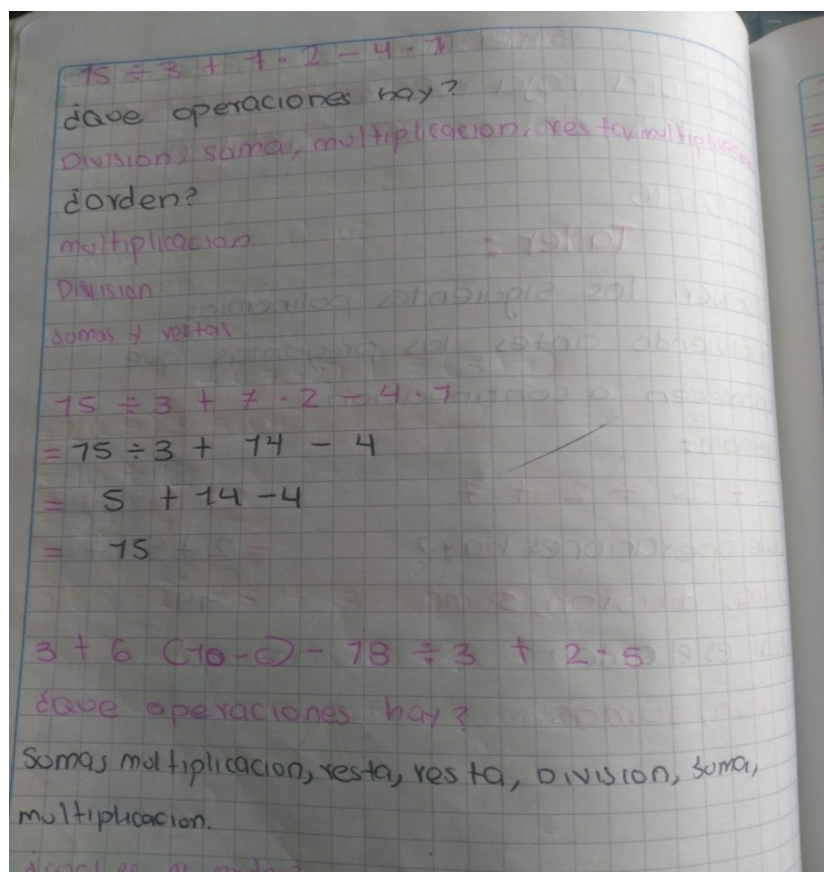 15 ÷ 3 + 7 · 2 - 4 · 1
¿Que operaciones hay?
Division, suma, multiplicacion, resta, multiplicacion
¿orden?
multiplicacion
Division
somas y restas
15 ÷ 3 + 7 · 2 - 4 · 1
= 15 ÷ 3 + 14 - 4
= 5 + 14 - 4
= 15
3 + 6 (10 - 6) - 18 ÷ 3 + 2 · 5
¿Que operaciones hay?
Somas multiplicacion, resta, resta, Division, suma,
multiplicacion.